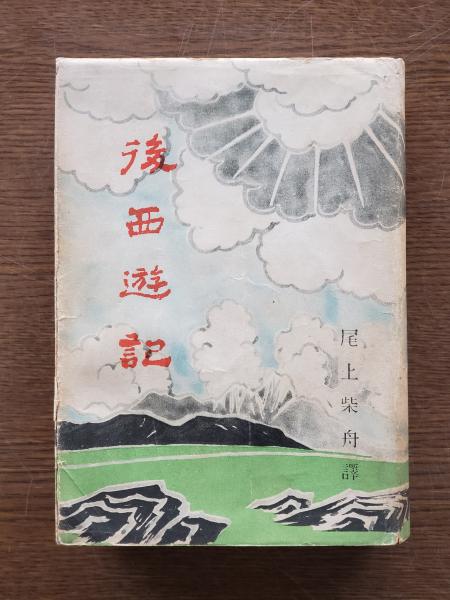 後西遊記
尾上柴舟譯